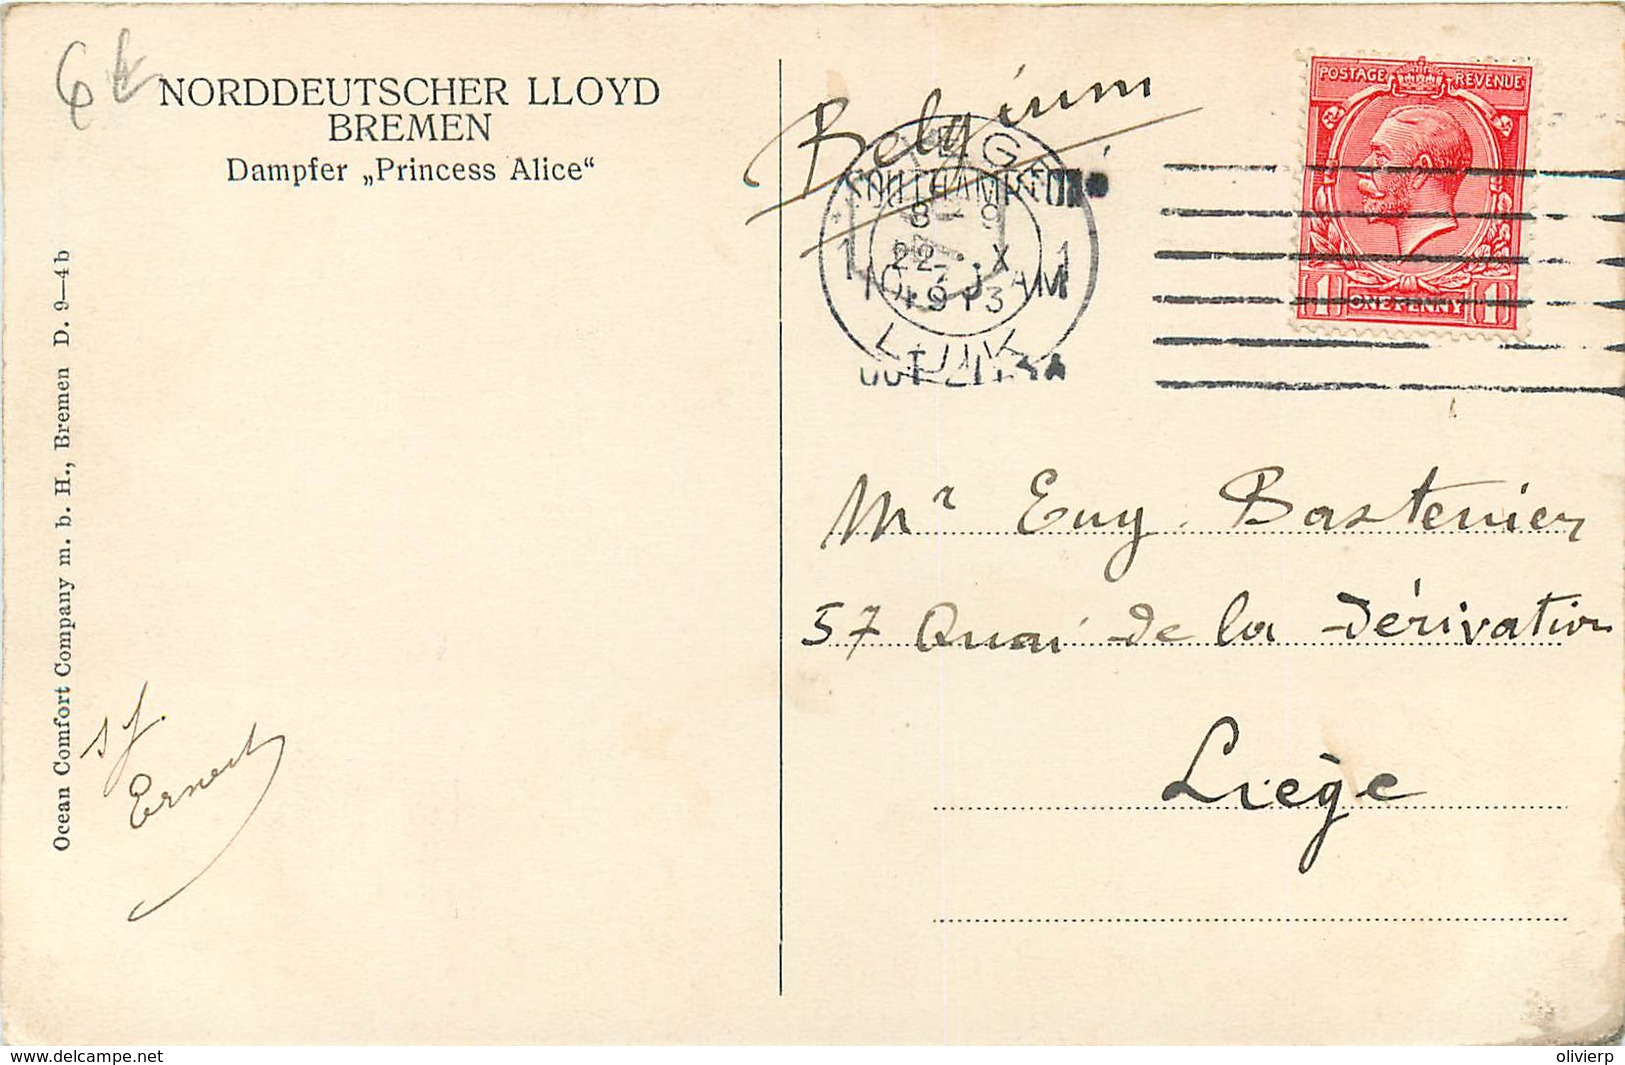 NORDDEUTSCHER LLOYD
BREMEN
Dampfer „Princess Alice“
Ocean Comfort Company m. b. H., Bremen D. 9—4b
Ernest
Belgium
POSTAGE REVENUE
1 ONE PENNY 1
LIEGE
SOUTHAMPTON
8 - 9
1 22 X 1
1913
AM
LUIK
OCT 21
Mr Eug. Bastenier
57 Quai de la Dérivation
Liège
delcampe.net
olivierp